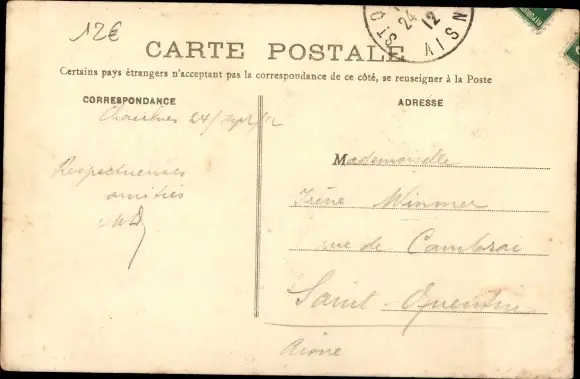 12€
24
12
AISN
CARTE POSTALE
Certains pays étrangers n'acceptant pas la correspondance de ce côté, se renseigner à la Poste
CORRESPONDANCE
ADRESSE
24/sept/12
Respectueuses
amitiés
Mademoiselle
Irène Wimmer
rue de Cambrai
Saint-Quentin
Aisne